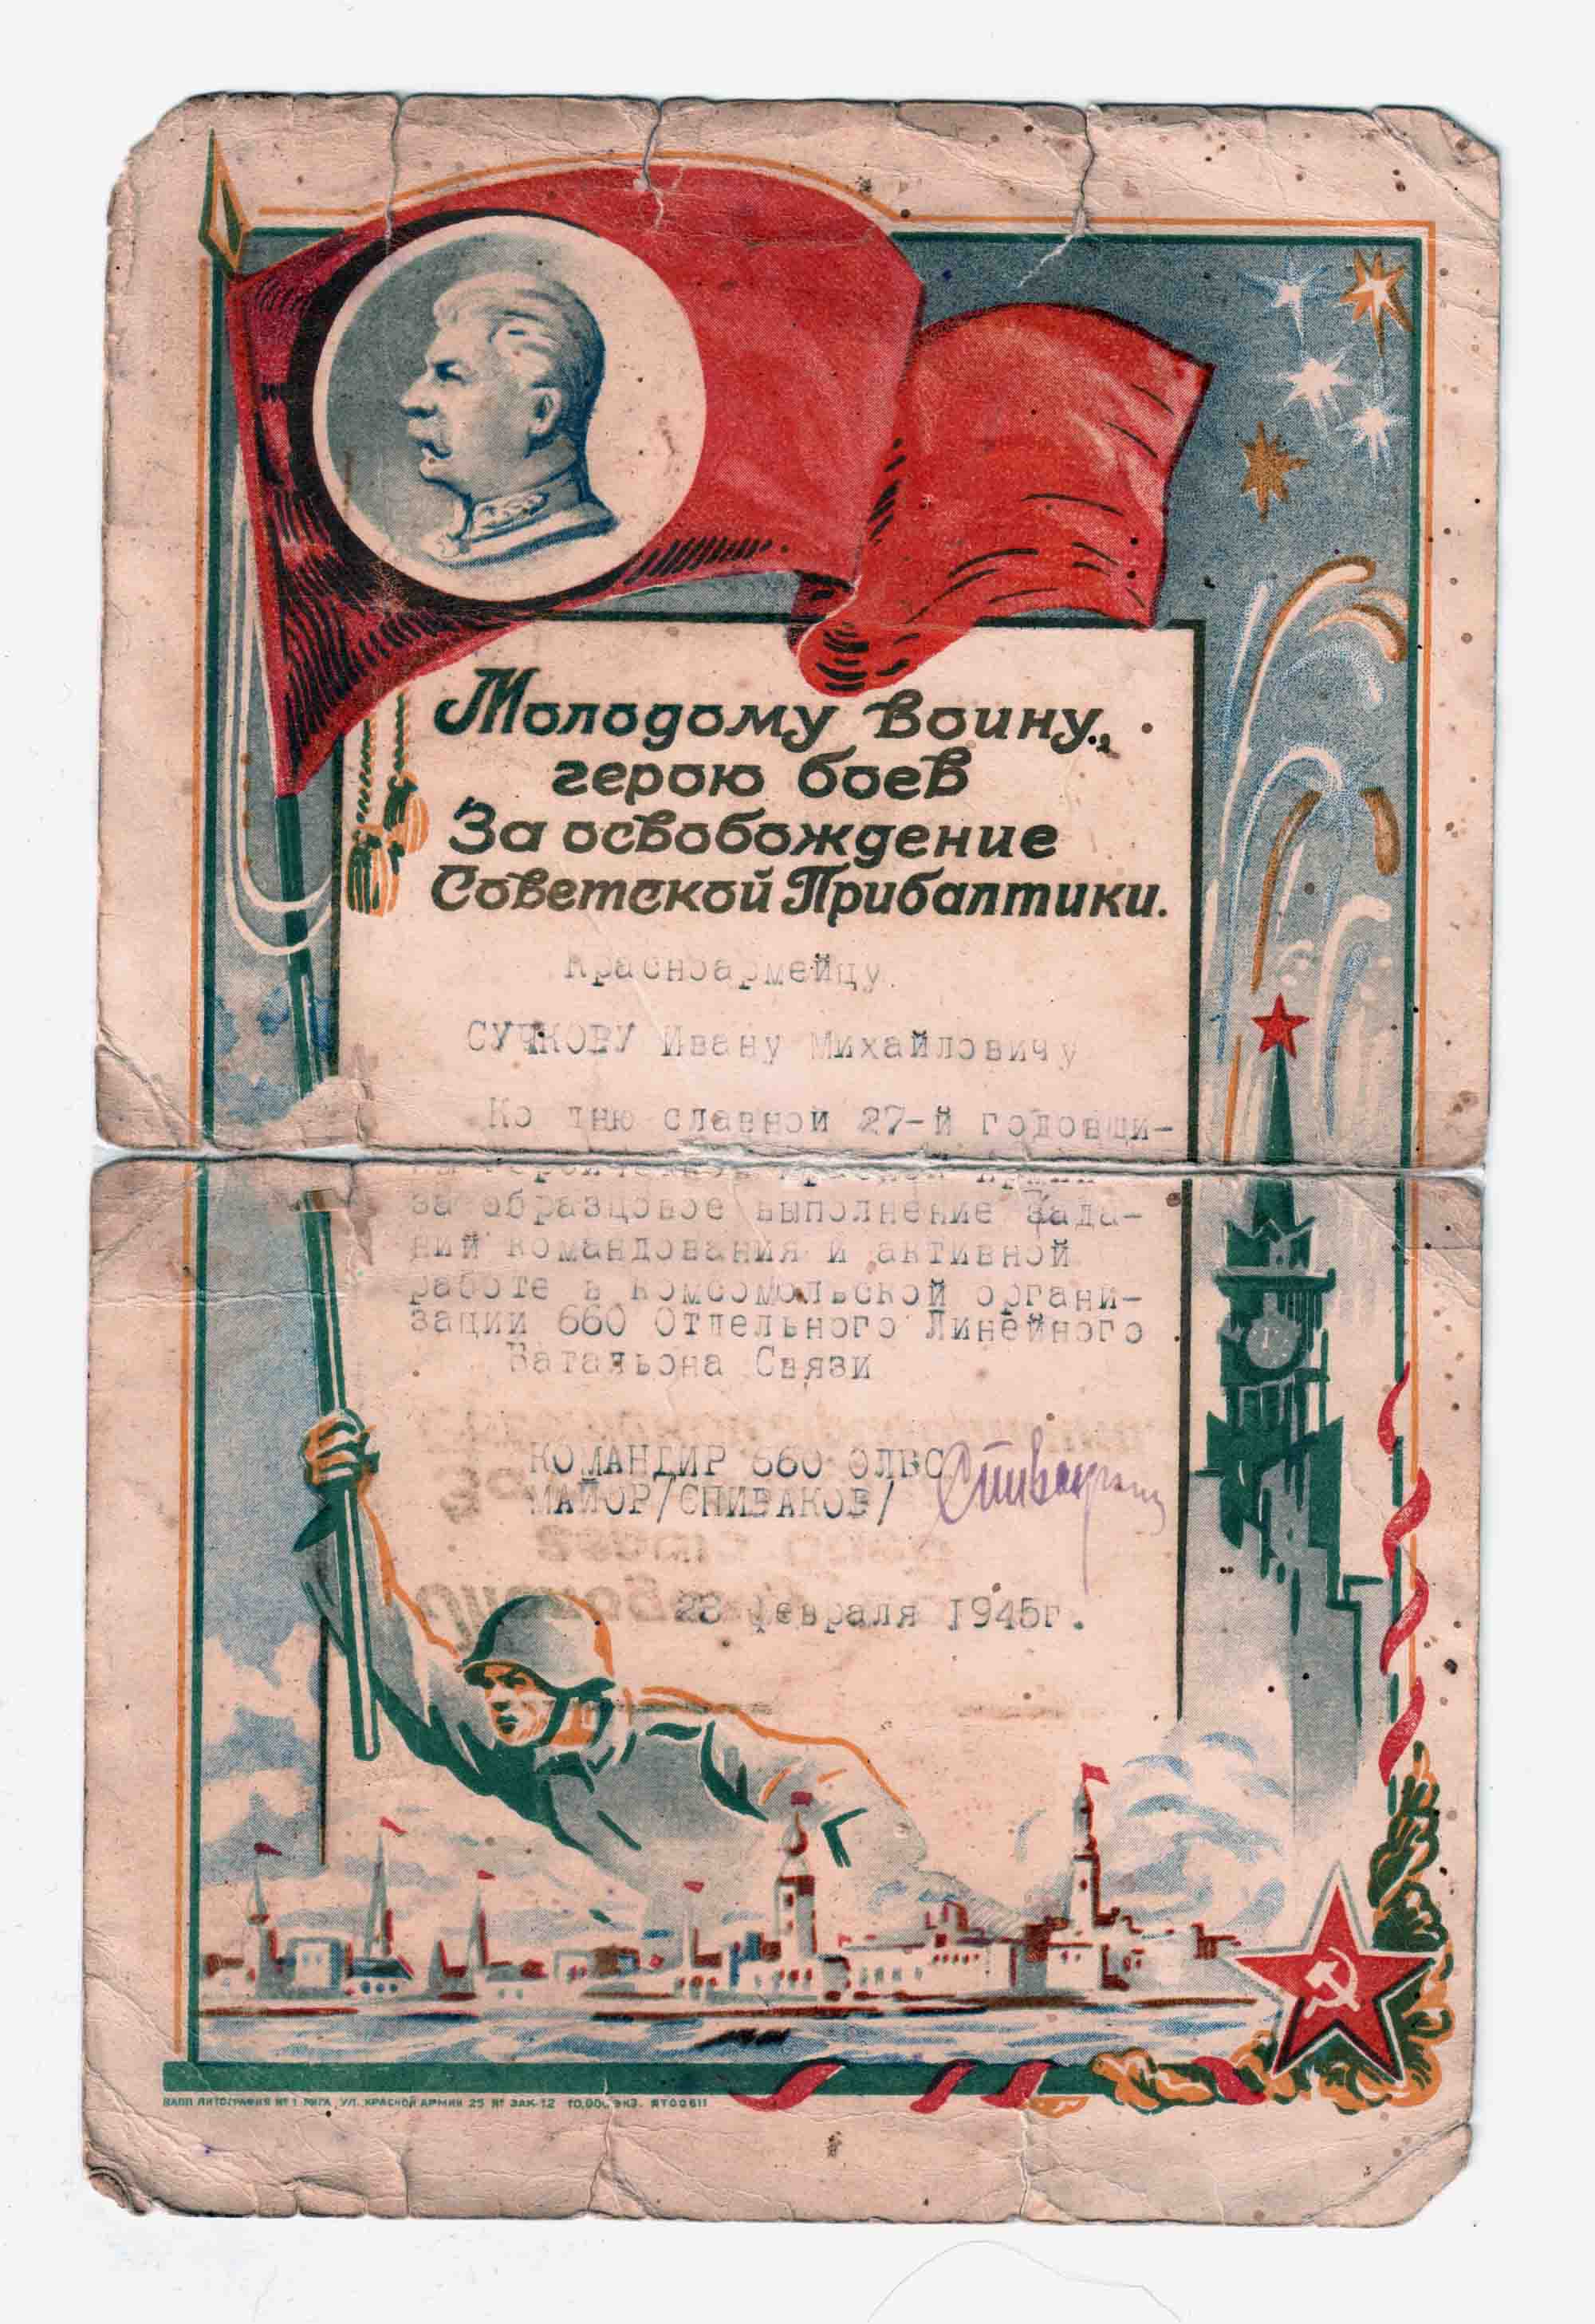 Молодому воину,
герою боев
За освобождение
Советской Прибалтики.
Красноармейцу
СУЧКОВУ Ивану Михайловичу
Ко дню славной 27-й годовщи-
за образцовое выполнение зада-
ний командования и активной
работе в комсомольской органи-
зации 660 Отдельного Линейного
Батальона Связи
КОМАНДИР 660 ОЛБС
МАЙОР/СПИВАКОВ/
23 февраля 1945г.
ЛИТОГРАФИЯ № 1 РИГА, УЛ. КРАСНОЙ АРМИИ 25 ЗАК-12 ЭКЗ.